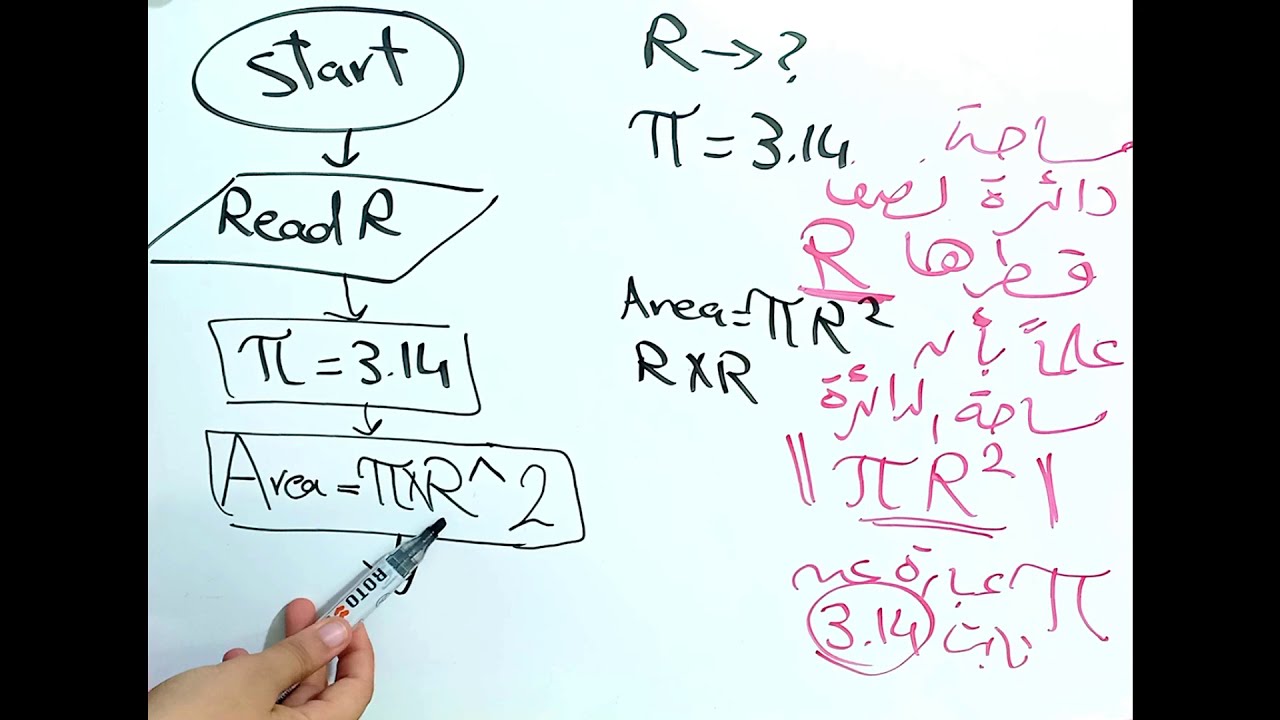 Start
Read R
π = 3.14
Area = π×R^2
R → ?
π = 3.14
Area = πR²
R×R
مساحة
دائرة نصف
قطرها R
علماً بأن
مساحة الدائرة
|| πR² |
π عبارة عن
ثابت 3.14
ROTO